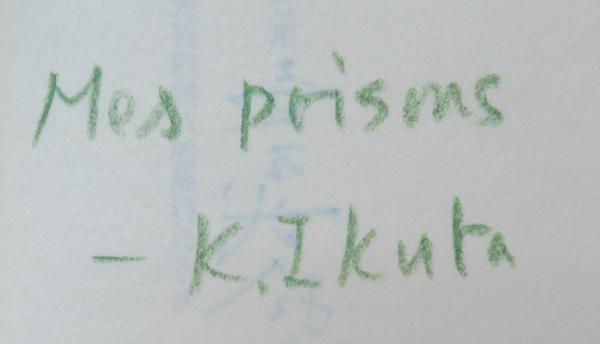 Mes prisms
– K. Ikuta